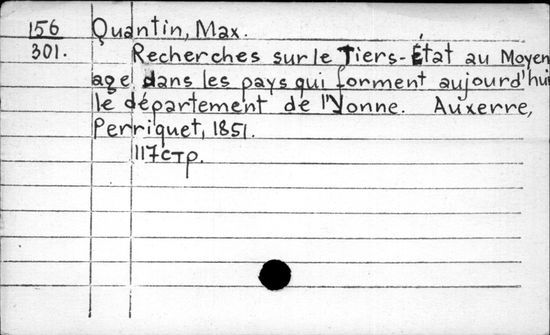 156 Quantin, Max.
301. Recherches sur le Tiers-État au Moyen
age dans les pays qui forment aujourd'hui
le département de l'Yonne. Auxerre,
Perriquet, 1851.
117стр.